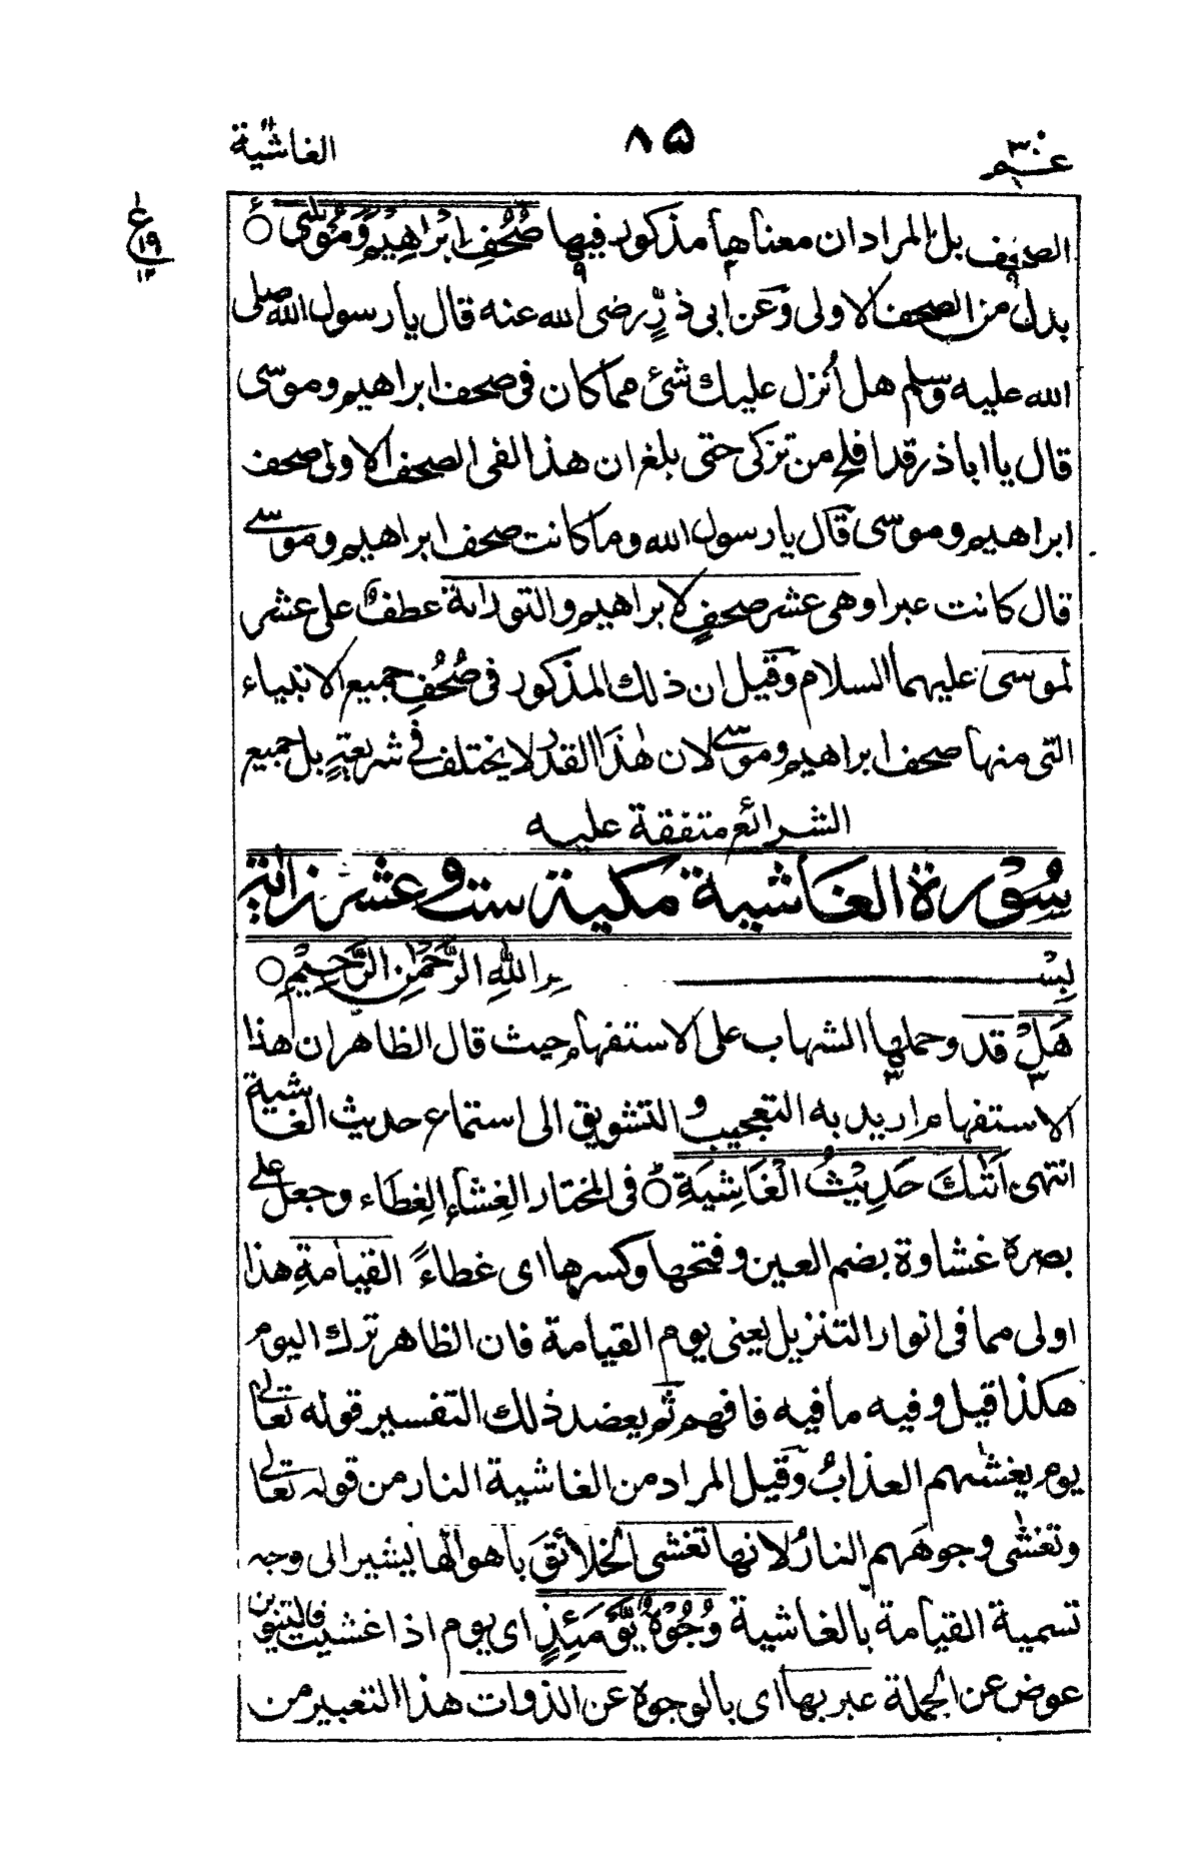 عم ٣٠
٨٥
الغاشية ٨٨
ع ١٩ ١٢
الصحف بل المراد ان معناها مذكور فيها صُحُفِ اِبْرَاهِيْمَ وَمُوْسٰى ○
بدل من الصحف الاولى وعن ابى ذرٍّ رضى الله عنه قال يا رسول الله صلى
الله عليه وسلم هل اُنزل عليك شئ مما كان فى صحف ابراهيم وموسى
قال يا اباذر قد افلح من تزكى حتى بلغ ان هذا لفى الصحف الاولى صحف
ابراهيم وموسى قال يا رسول الله وما كانت صحف ابراهيم وموسى
قال كانت عبرا وهى عشر صحفٍ لابراهيم والتوراة عطف على عشر
لموسى عليهما السلام وقيل ان ذلك المذكور فى صُحُفِ جميع الانبياء
التى منها صحف ابراهيم وموسى لان هٰذا القدر لا يختلف فى شريعةٍ بل جميع
الشرائع متفقة عليه
سُوْرة الغاشية مكية ست وعشرون اٰية
بِسْــــــمِ اللهِ الرَّحْمٰنِ الرَّحِيْمِ ○
هَلْ قد وحملها الشهاب على الاستفهام حيث قال الظاهر ان هذا
الاستفهام اريد به التعجيب والتشويق الى استماع حديث الغاشية
انتهى اَتٰىكَ حَدِيْثُ الْغَاشِيَةِ ○ فى المختار الغِشَاء الغِطَاء وجعل على
بصره غشاوة بضم العين وفتحها وكسرها اى غطاءً القيامةِ هذا
اولى مما فى انوار التنزيل يعنى يوم القيامة فان الظاهر ترك اليوم
هكذا قيل وفيه ما فيه فافهم ثم يعضد ذلك التفسير قوله تعالى
يوم يغشٰهم العذابُ وقيل المراد من الغاشية النار من قوله تعالى
وتغشٰى وجوهَهم النارُ لانها تغشى الخلائقَ باهوالها يشير الى وجه
تسمية القيامة بالغاشية وُجُوْهٌ يَّوْمَئِذٍ اى يوم اذا غشيت فالتنوين
عوض عن الجملة عبر بها اى بالوجوه عن الذوات هذا التعبير من